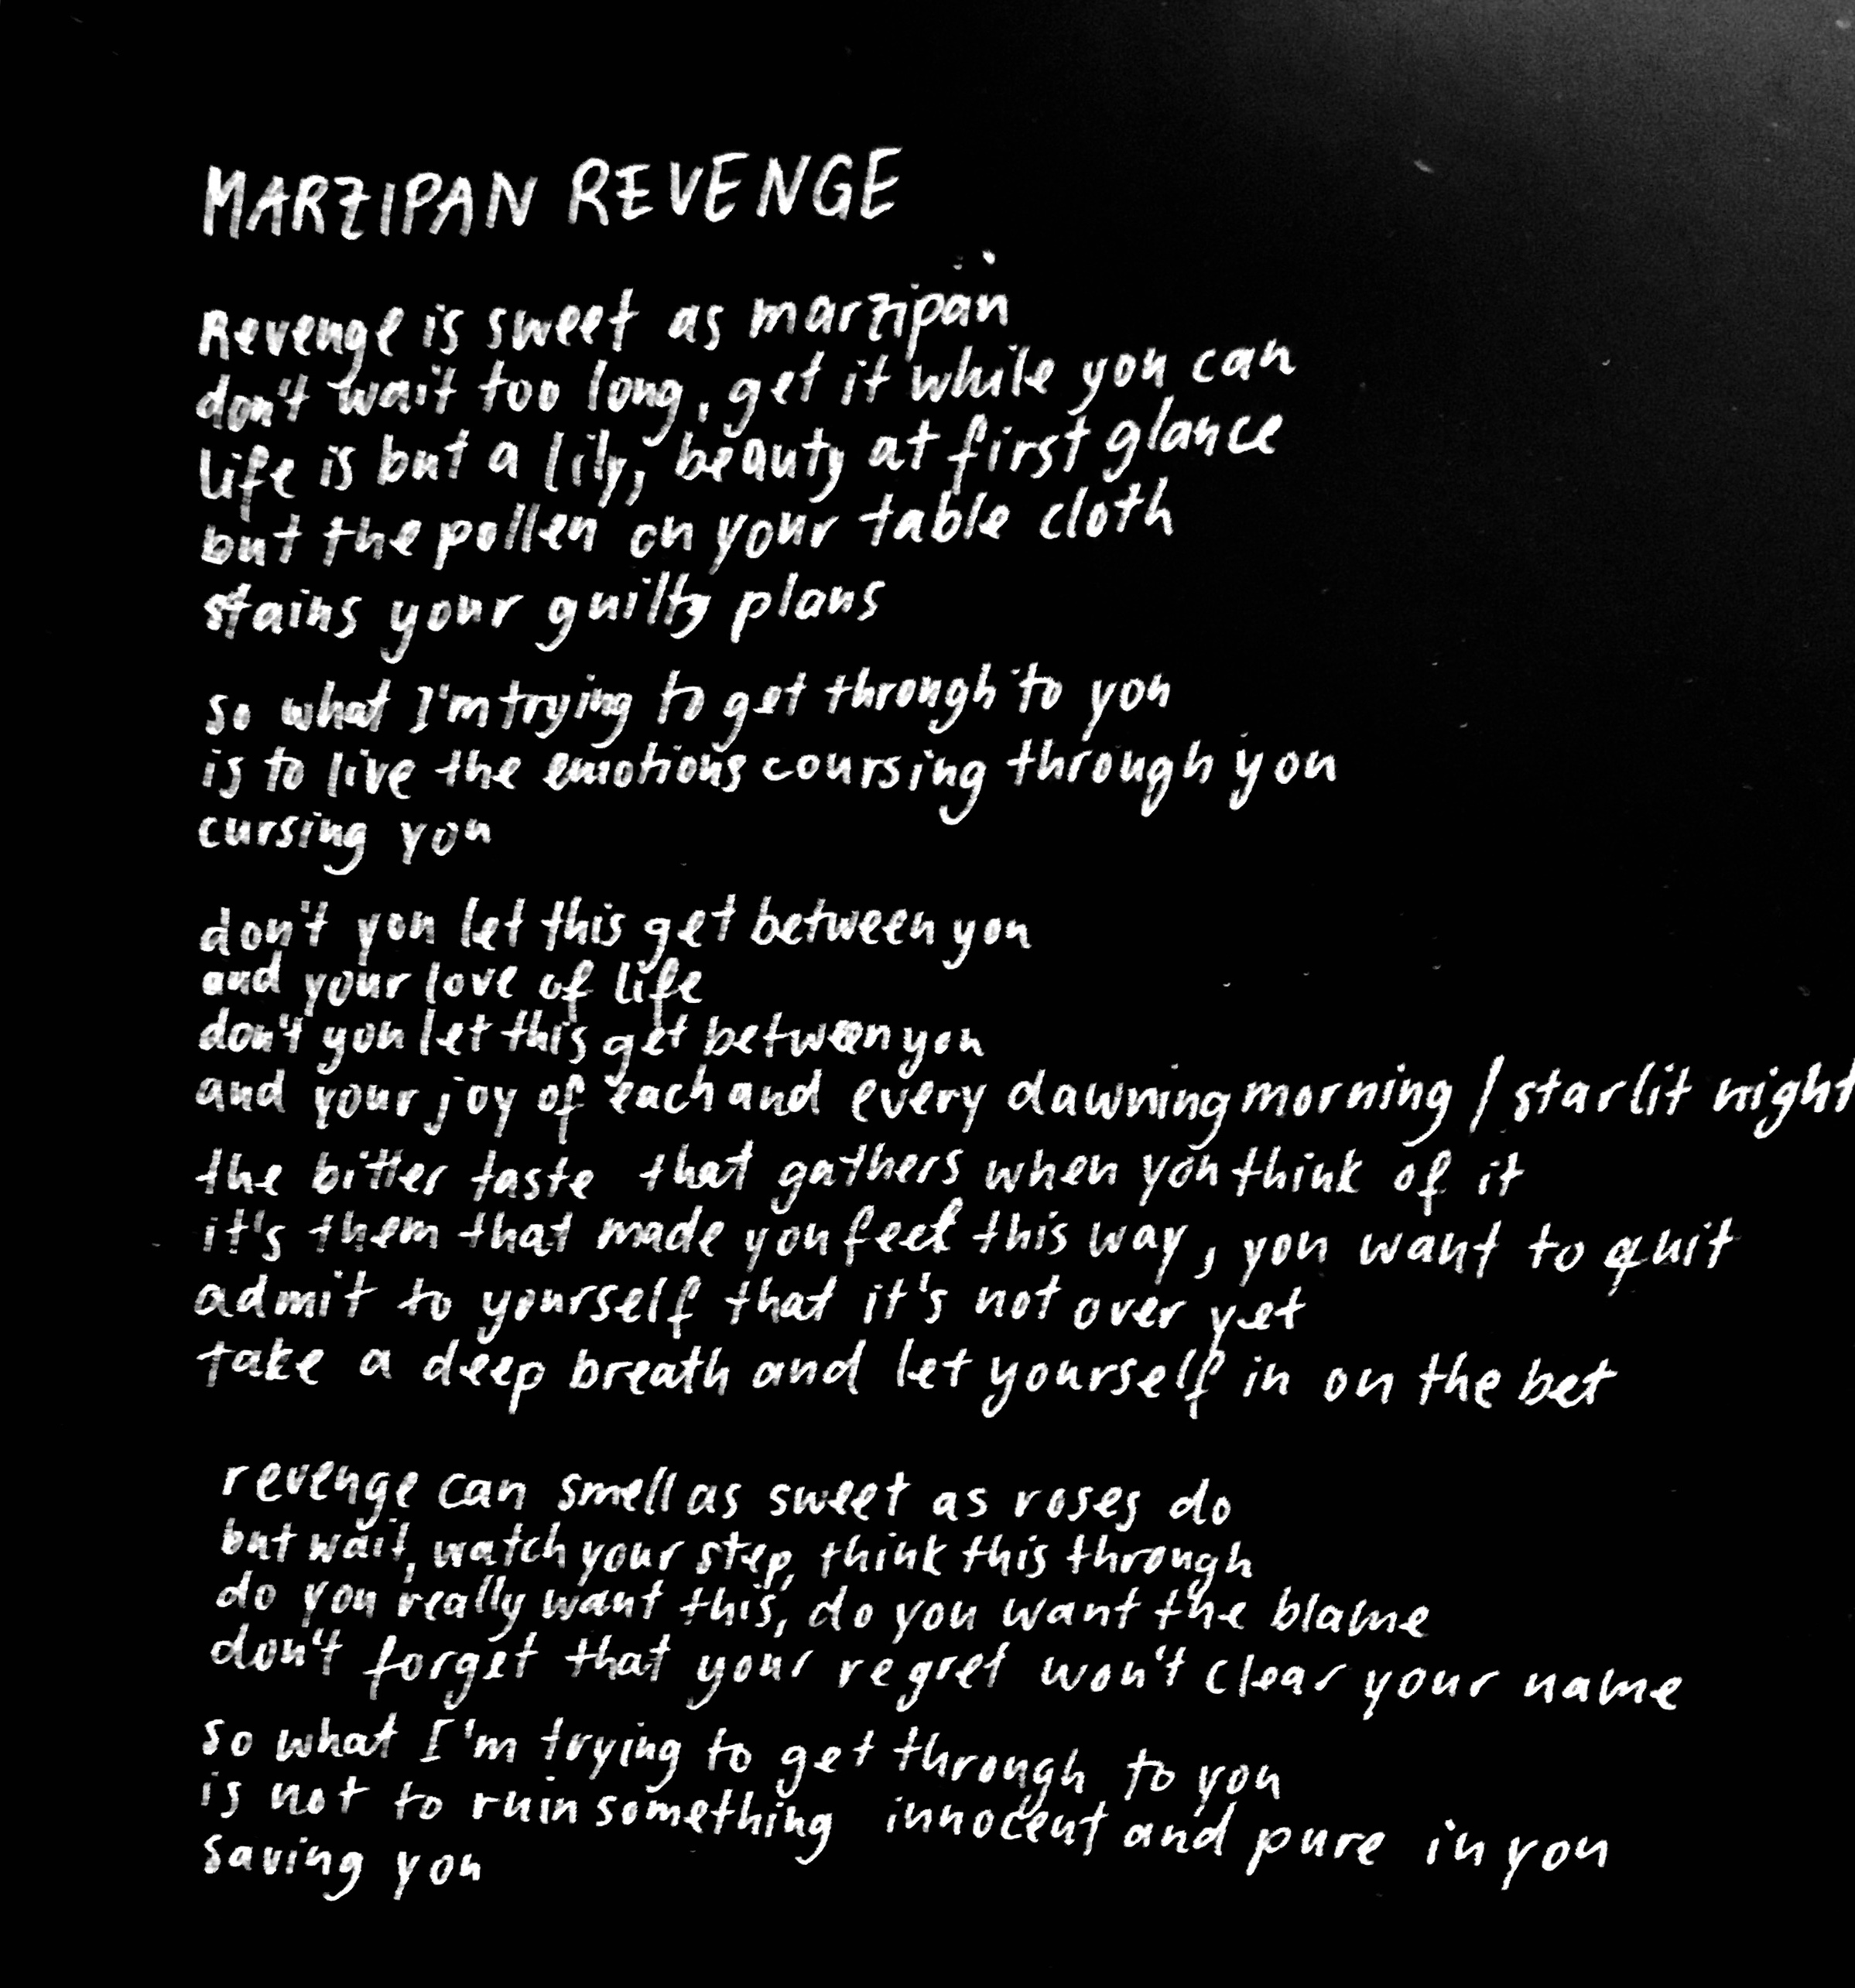 MARZIPAN REVENGE
Revenge is sweet as marzipan
don't wait too long, get it while you can
life is but a lily, beauty at first glance
but the pollen on your table cloth
stains your guilty plans
so what I'm trying to get through to you
is to live the emotions coursing through you
cursing you
don't you let this get between you
and your love of life
don't you let this get between you
and your joy of each and every dawning morning / starlit night
the bitter taste that gathers when you think of it
it's them that made you feel this way, you want to quit
admit to yourself that it's not over yet
take a deep breath and let yourself in on the bet
revenge can smell as sweet as roses do
but wait, watch your step, think this through
do you really want this, do you want the blame
don't forget that your regret won't clear your name
so what I'm trying to get through to you
is not to ruin something innocent and pure in you
saving you